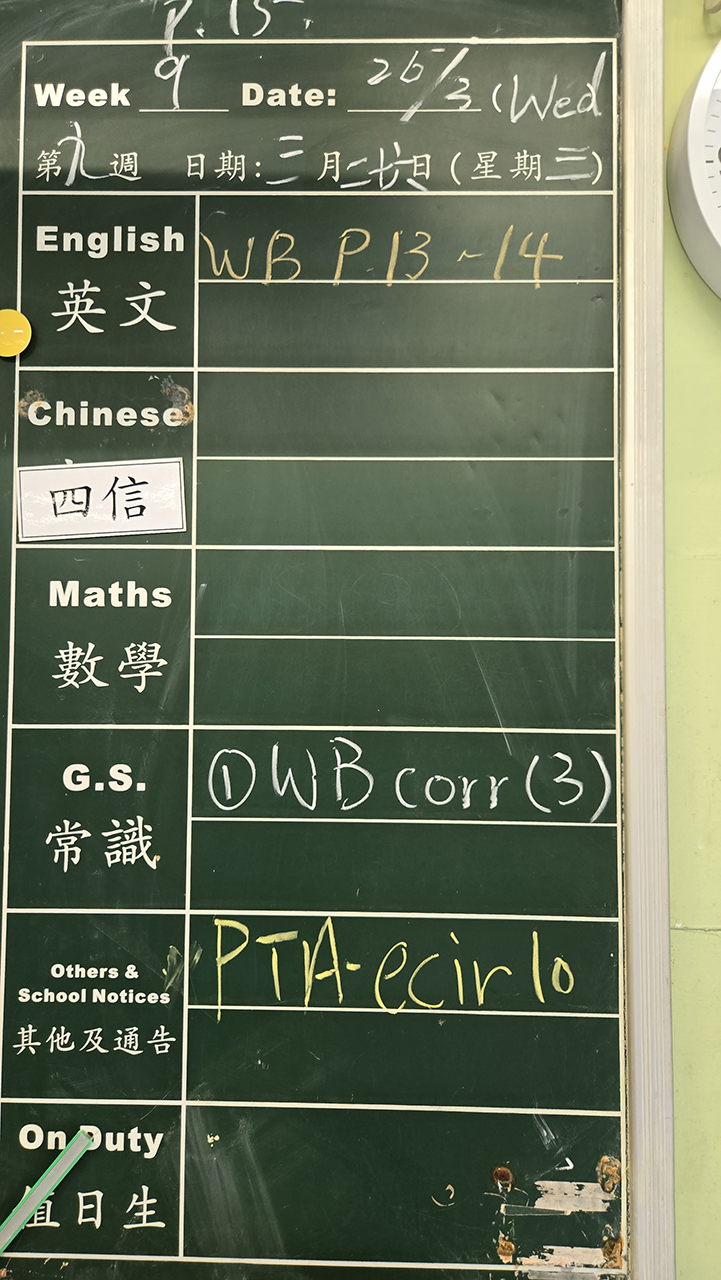 P. 15.
Week 9 Date: 26/3 (Wed
第九週 日期:三月二十六日(星期三)
English WB P.13 ~ 14
英文
Chinese
四信
Maths
數學
G.S. ① WB corr (3)
常識
Others & School Notices PTA-ecir 10
其他及通告
On Duty
值日生